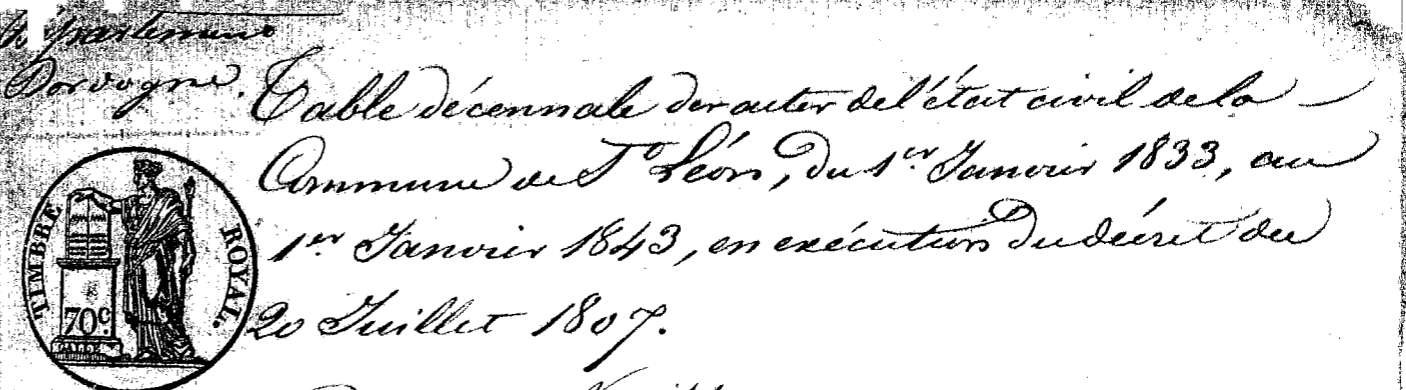 Département
Dordogne.
Table décennale des actes de l'état civil de la
Commune de St Léon, du 1er Janvier 1833, au
1er Janvier 1843, en exécution du décret du
20 Juillet 1807.
TIMBRE ROYAL.
70c